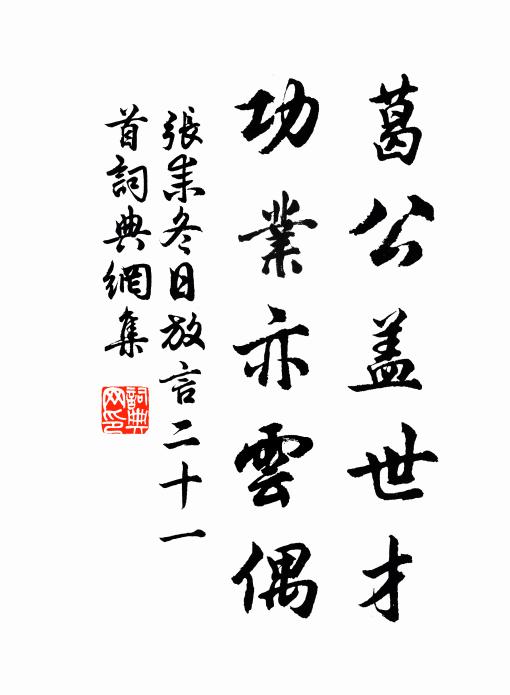 葛公盖世才
功業亦雲偶
張耒冬日放言二十一
首詞典網集
詞典
网印